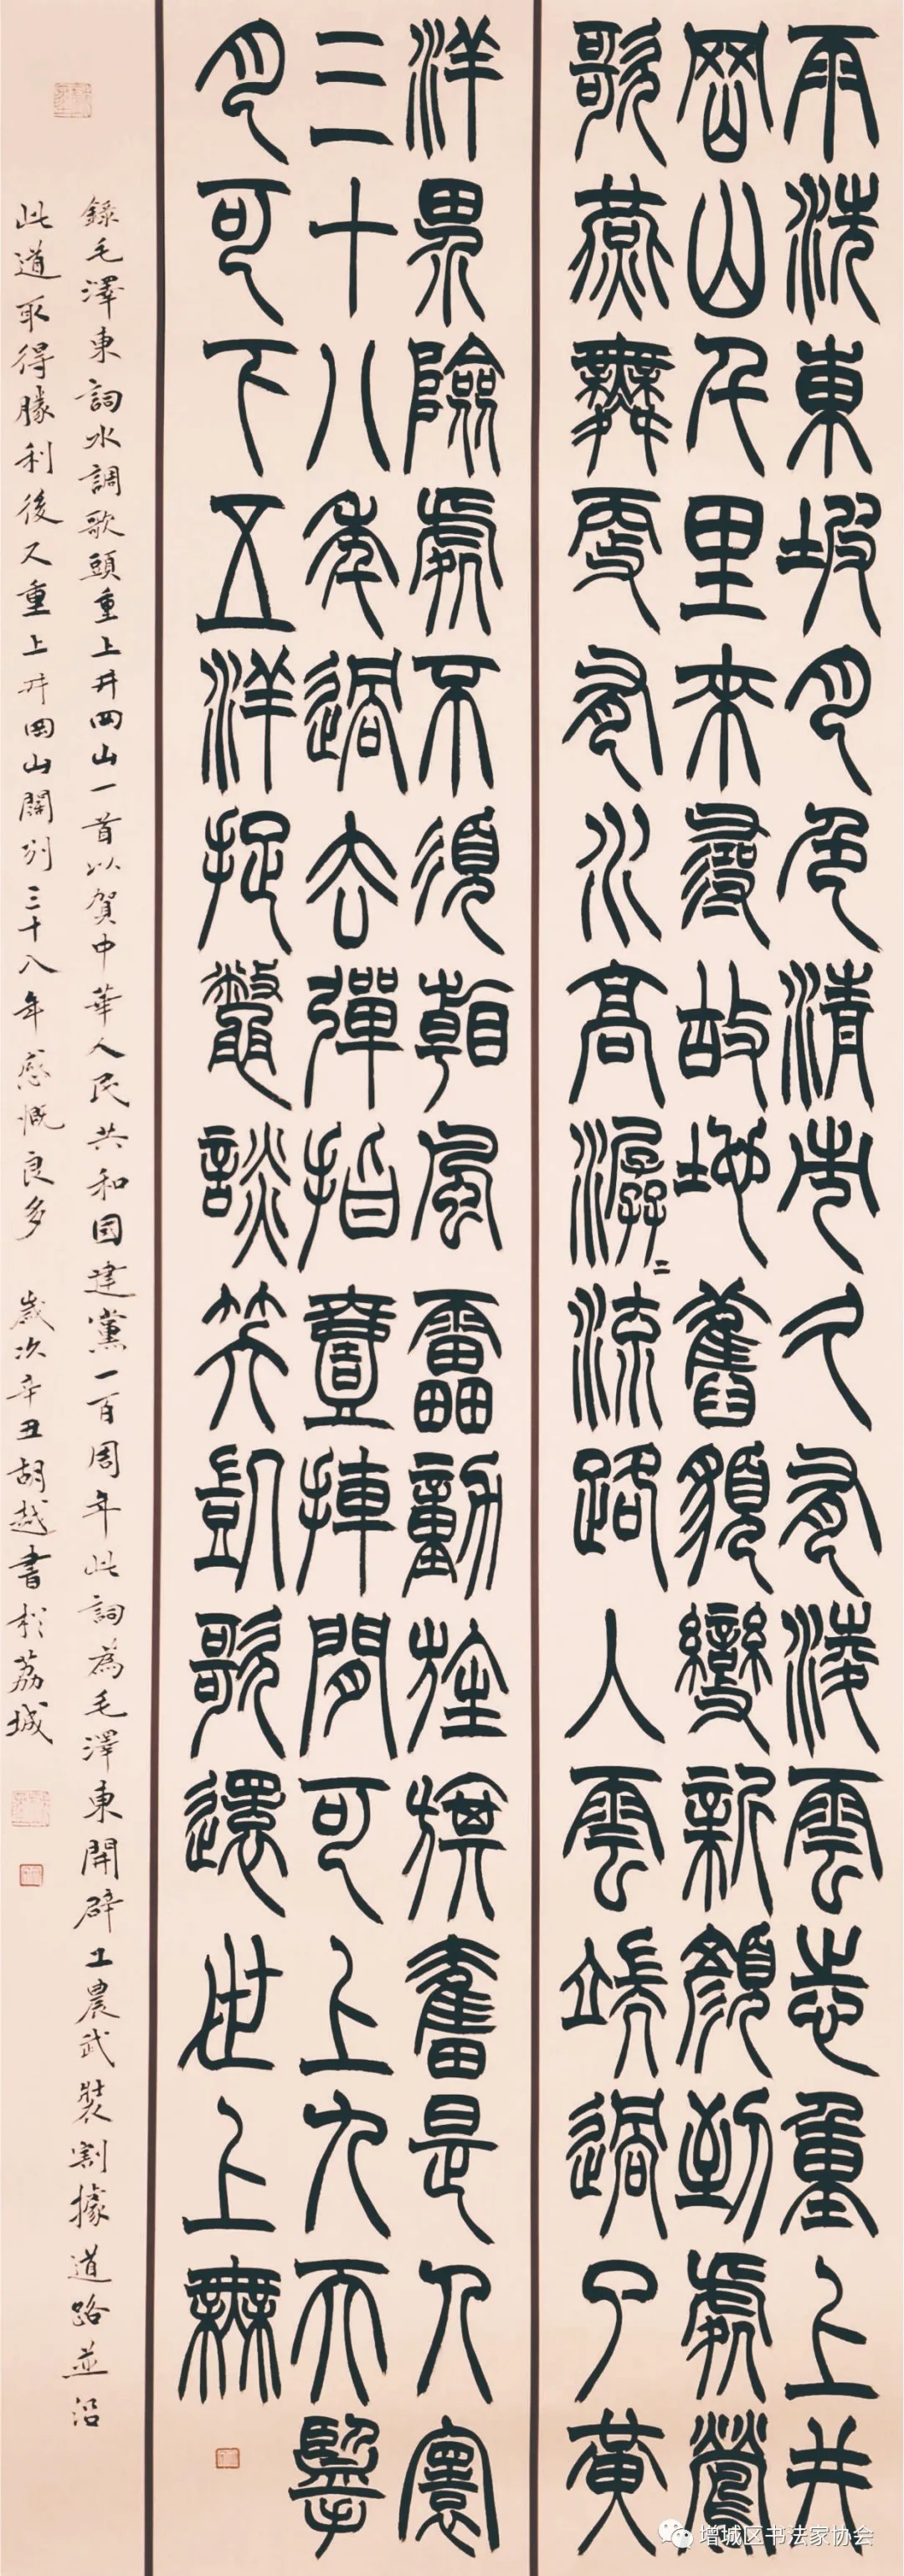 雨洗東坡月色清市久有凌雲志重上井
岡山千里來尋故地舊貌變新顏到處鶯
歌燕舞更有水高潺二流路入雲端過了黃
洋界險處不須看風雷動旌旗奮是人寰
三十八年過去彈指壹揮間可上九天攬
月可下五洋捉鱉談笑凱歌還世上無
錄毛澤東詞水調歌頭重上井岡山一首以賀中華人民共和國建黨一百周年此詞為毛澤東開辟工農武裝割據道路並沿
此道取得勝利後又重上井岡山闊別三十八年感慨良多 歲次辛丑胡越書於荔城
增城区书法家协会